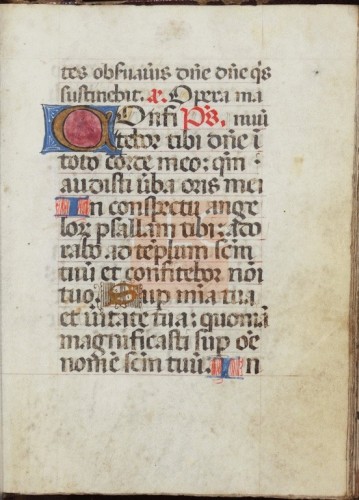 tes obſuaūis dn̄e dn̄e q̄s
ſuſtinebit. a. Opera ma
Onfi Ps. nuū
C tebor tibi dn̄e ī
toto corde meo: qm̄
audiſti v̄ba oris mei
In conſpectu ange
lor psallam tibi: ado
rabo ad tēplum ſcm̄
tuū et confitebor noī
tuo. Sup mīa tua
et v̄itate tua: quonīā
magnificaſti ſup oē
nomē ſcm̄ tuū. In